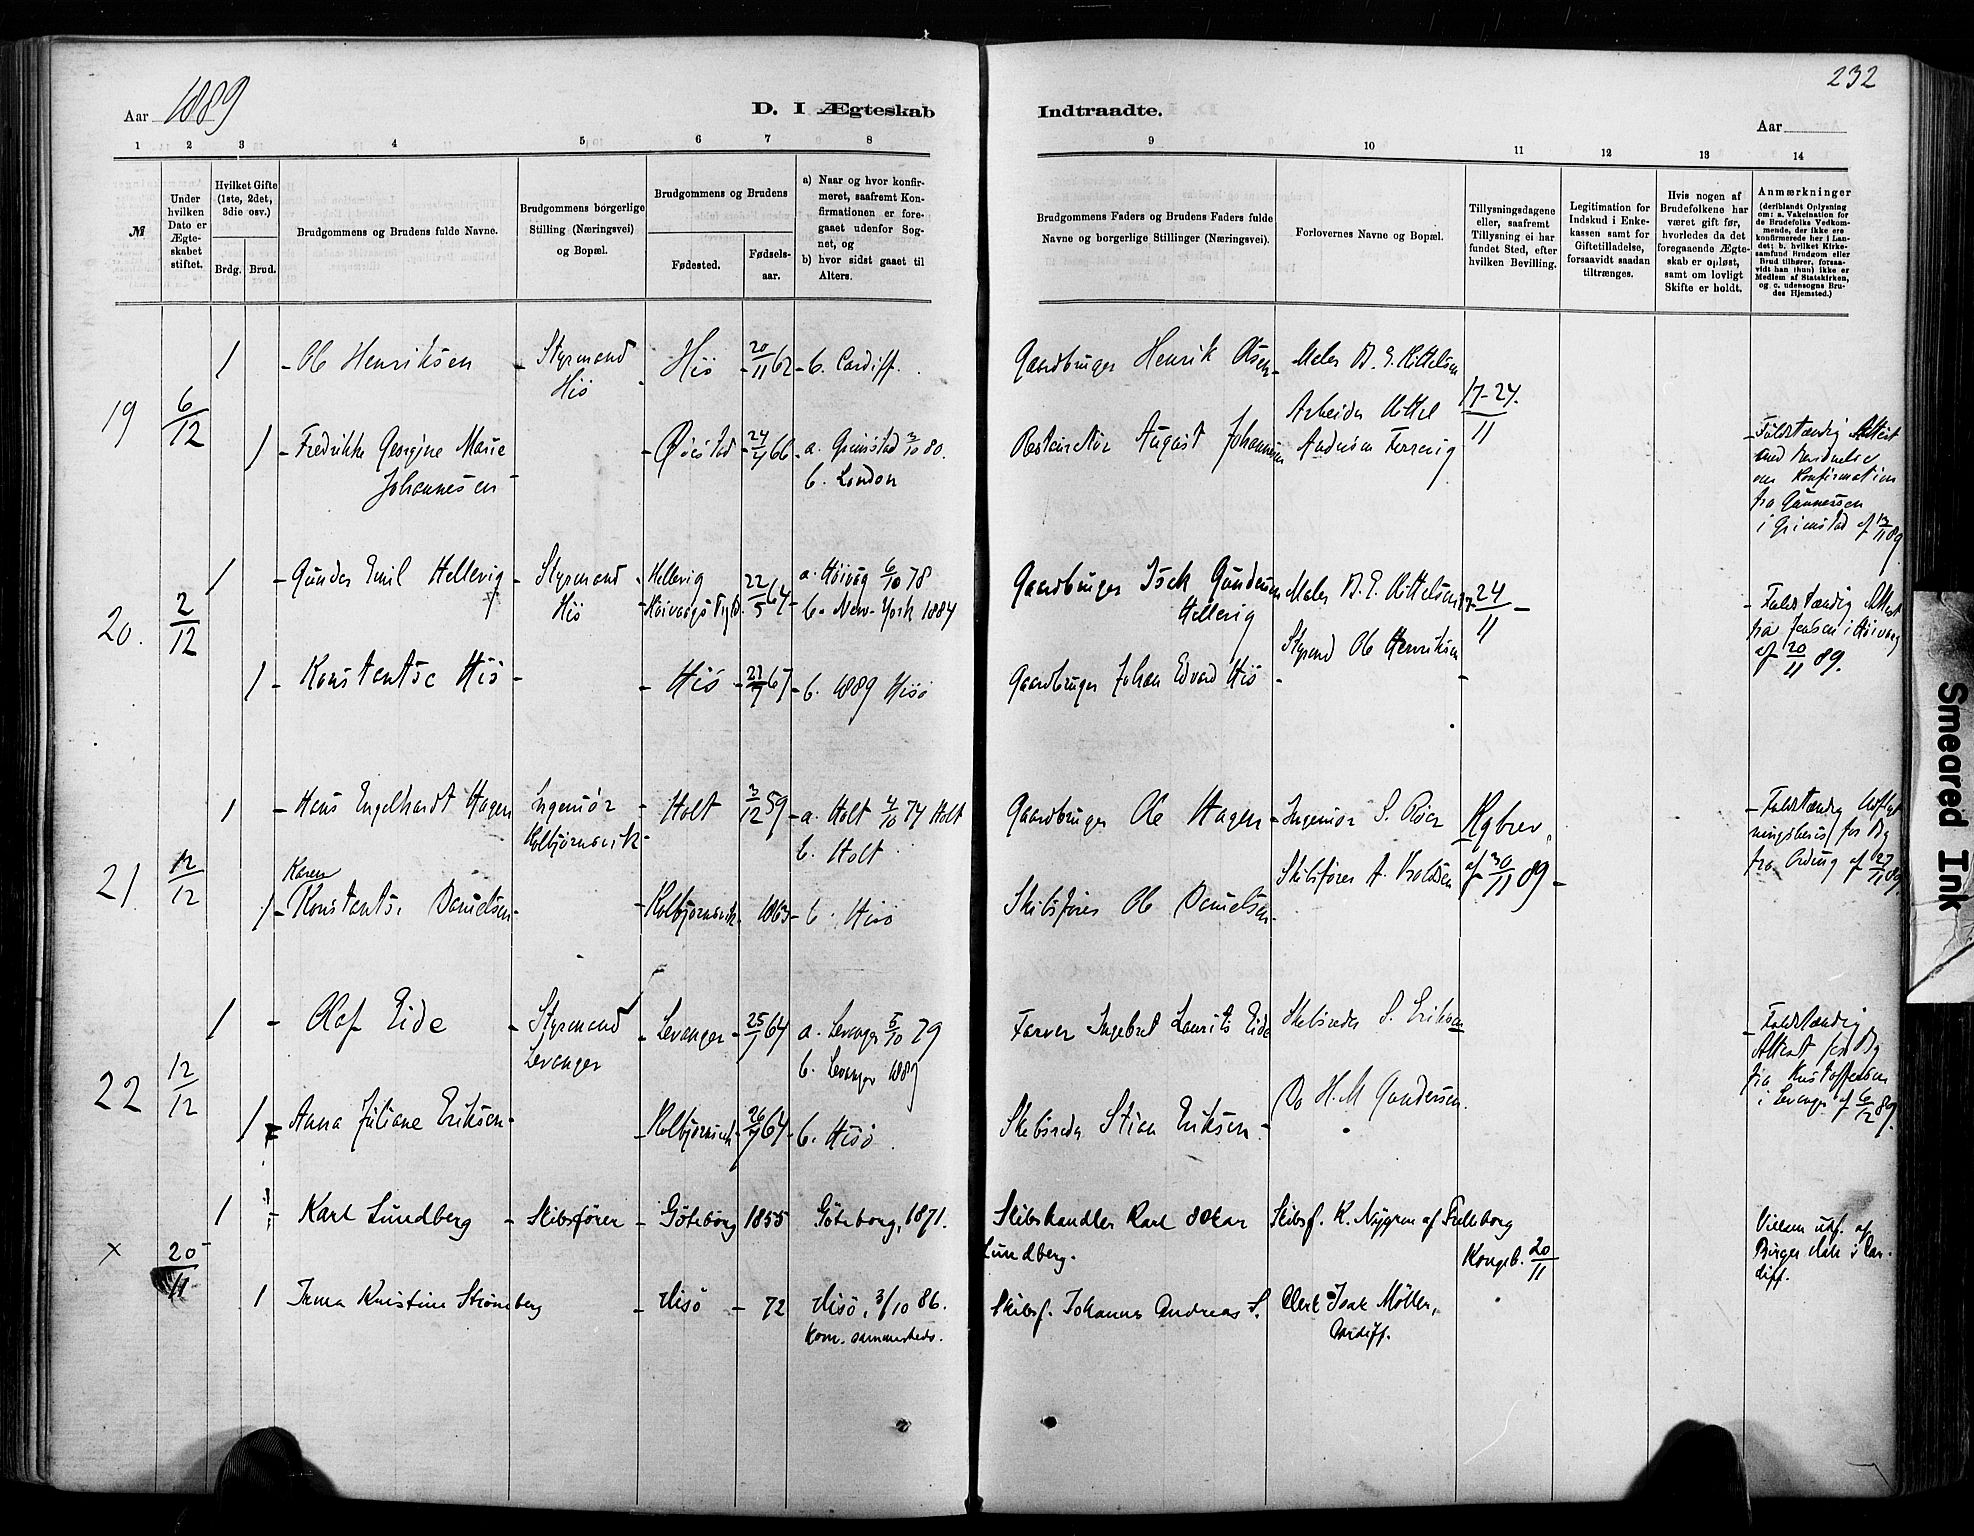 232
Aar 1889
D. I Ægteskab Indtraadte.
Aar
1 2 3 4 5 6 7 8 9 10 11 12 13 14
№
Under hvilken Dato er Ægteskabet stiftet.
Hvilket Gifte (1ste, 2det, 3die osv.)
Brdg. Brud.
Brudgommens og Brudens fulde Navne.
Brudgommens borgerlige Stilling (Næringsvei) og Bopæl.
Brudgommens og Brudens
Fødested. Fødselsaar.
a) Naar og hvor konfirmeret, saafremt Konfirmationen er foregaaet udenfor Sognet, og
b) hvor sidst gaaet til Alters.
Brudgommens Faders og Brudens Faders fulde Navne og borgerlige Stillinger (Næringsvei).
Forlovernes Navne og Bopæl.
Tillysningsdagene eller, saafremt Tillysning ei har fundet Sted, efter hvilken Bevilling.
Legitimation for Indskud i Enkekassen samt for Giftetilladelse, forsaavidt saadan tiltrænges.
Hvis nogen af Brudefolkene har været gift før, hvorledes da det foregaaende Ægteskab er opløst, samt om lovligt Skifte er holdt.
Anmærkninger
(deriblandt Oplysning om: a. Vakcination for de Brudefolks Vedkommende, der ikke ere konfirmerede her i Landet; b. hvilket Kirkesamfund Brudgom eller Brud tilhører, forsaavidt han (hun) ikke er Medlem af Statskirken, og c. udensogns Brudes Hjemsted.)
19 6/12
1 - Ole Henriksen - Styrmand Hiö - Hiö - 20/11 62 - b. Cardiff.
Gaardbruger Henrik Olsen - Maler B. E. Kittelsen
17-24./11
1 - Fredrikke Georgine Marie Johannesen - Øiestad - 24/4 66 - a. Grimstad 3/10 80. b. London
August Johannesen
Arbeider Kittel
- Fuldstændig Attest
om Konfirmation
fra Gunnersen
i Grimstad af 13/11 89
20. 2/12
1 - Gunder Emil Hellevig - Styrmand Hiö - Hellevig - Høivaags - 22/5 64 - a. Høivåg 6/10 78 b. New-York 1884
Gaardbruger Isak Gundersen Hellevig
Maler B. E. Kittelsen
17-24/11 -
Styrmd Ole Henriksen
1 - Konstantse Hiö - Hiö - 67 - b. 1889 Hisö
Gaardbruger Johan Edvard Hiö -
- Fuldstændig Attest
fra Jensen i Høivaag
af 20/11 89.
21. 12/12
1 - Hans Engelhardt Hagen - Ingeniør Kolbjørnsvik - Holt - 3/12 59 - a. Holt 4/10 74 Holt b. Holt
Gaardbruger Ole Hagen - Ingeniør S.
Kgbrev. af 30/11 89 -
Karen
1 - Konstantse Danielsen - Kolbjørnsvik - 1863 - b. Hisö
Skibsfører Ole Danielsen -
Skibsfører A.
- Fuldstændig
fra af 27/11 89
22 12/12
1 - Olaf Eide - Styrmand Levanger - Levanger - 25/7 64 - a. Levanger 5/10 79 b. Levanger 1889
Farver Ingebret Laurits Eide
Skibsreder S. Eriksen
1 - Anna Juliane Eriksen - Kolbjørnsvik - 26/7 64 - b. Hisö.
Skibsreder Stian Eriksen -
Do H. M Gundersen.
- Fuldstændig
Attest for
fra Kristoffersen
i Levanger af 6/12 89.
x 20/11
1 - Karl Lundberg - Skibsfører - Göteborg 1855 Göteborg, 1871.
Skibshandler Karl Oskar Lundberg.
Skibsf. K. Nygren af
Kongeb. 20/11
1 Irma Kristine Strömberg - Hisö - 72 Hisö, 3/10 86. Kom. sammesteds.
Skibsf. Johannes Andreas S.
Clerk Isak Möller, Cardiff.
Vielsen udf. af
Birger i Cardiff.
Smeared Ink